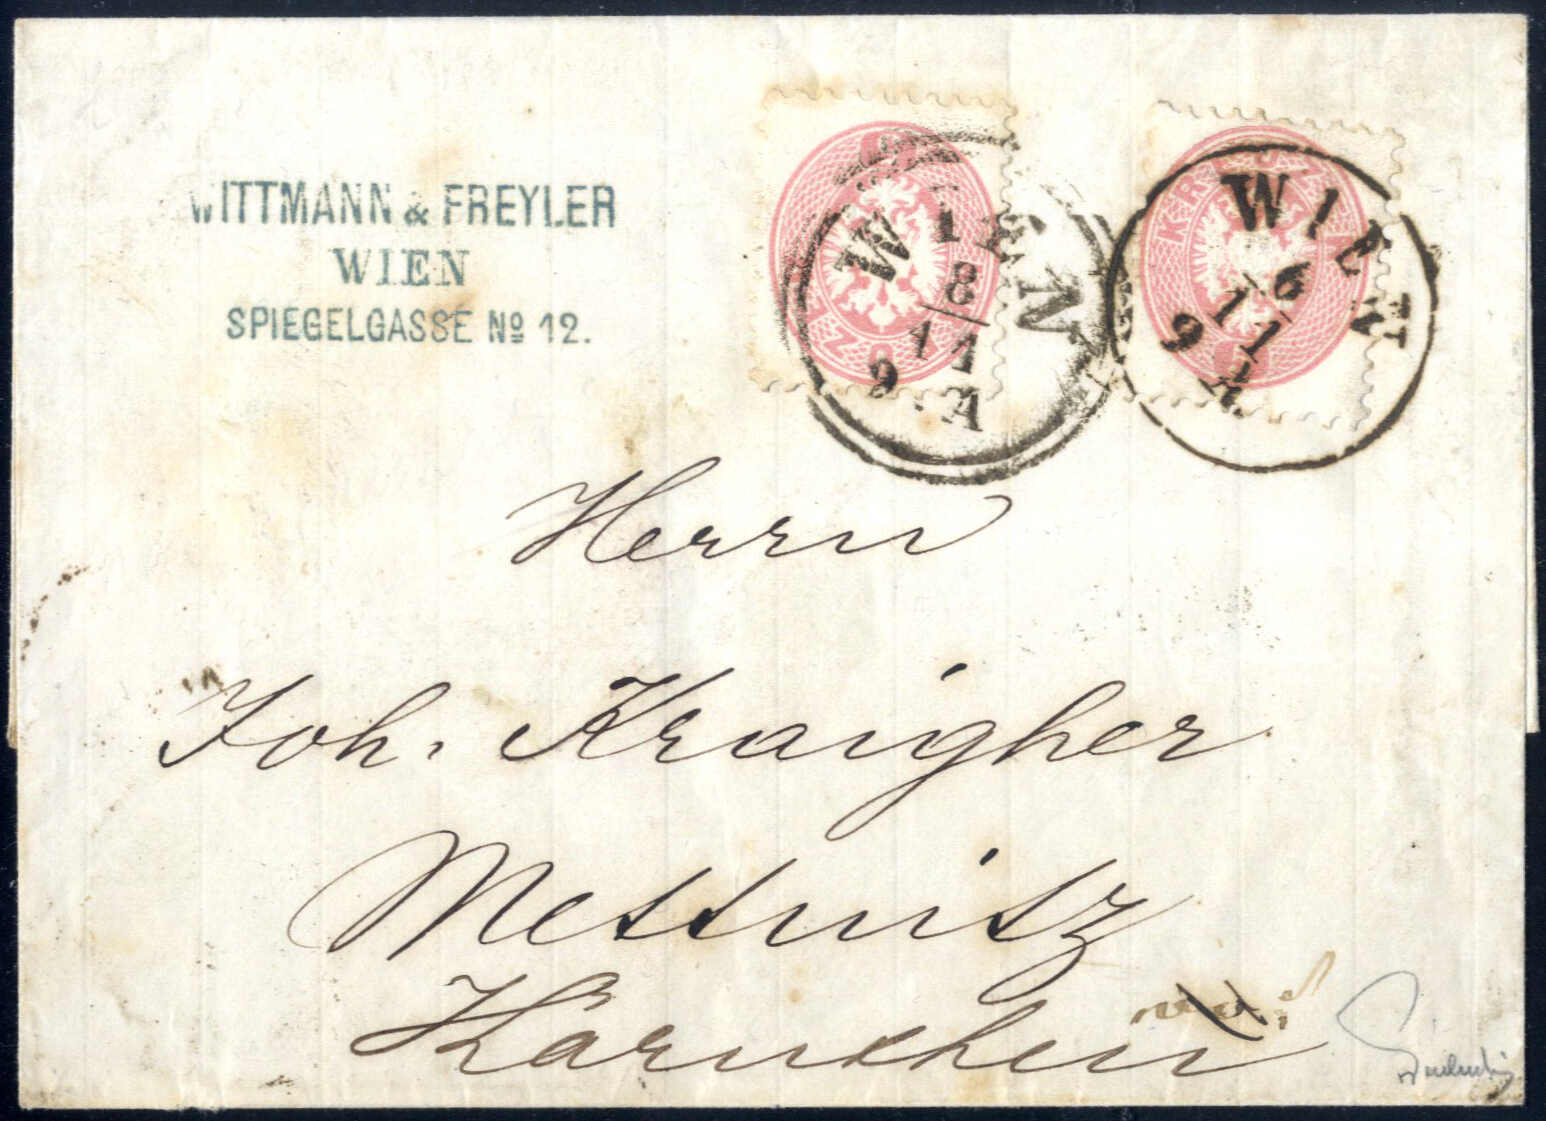 WITTMANN & FREYLER
WIEN
SPIEGELGASSE No 12.
WIEN
8/11
9 A
WIEN
6/11
9 A
KREUZER
Herrn
Joh. Kraigher
Mettnitz
Kärnthen